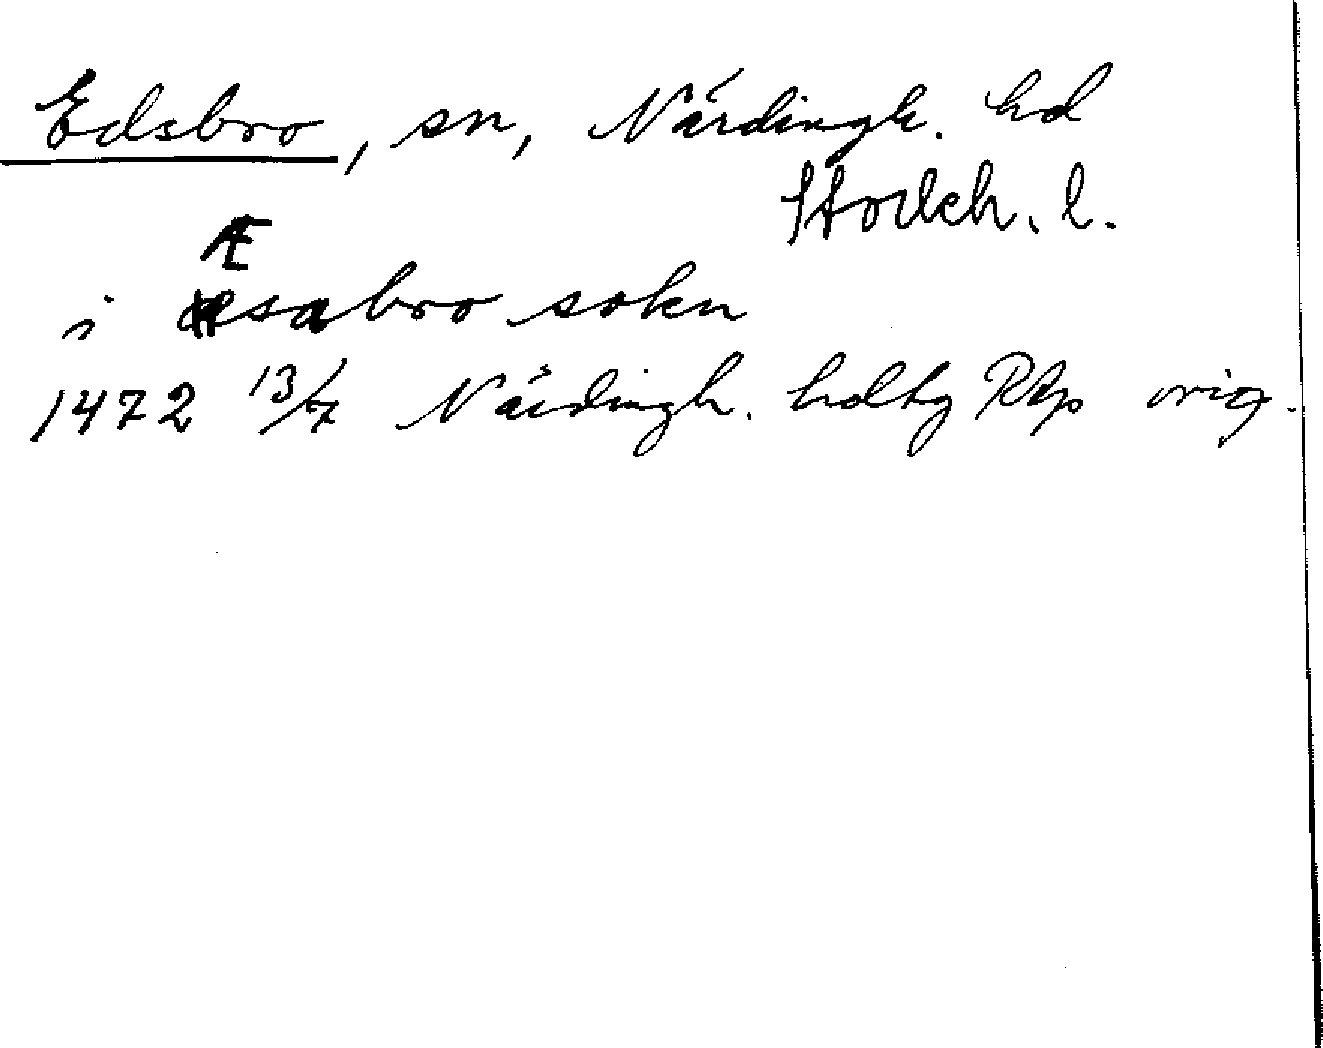 Edsbro, sn, Närdingh. hd
Stockh. l.
Æ
i æsabro sokn
1472 13/7 Närdingh. hdbtg RAp orig.